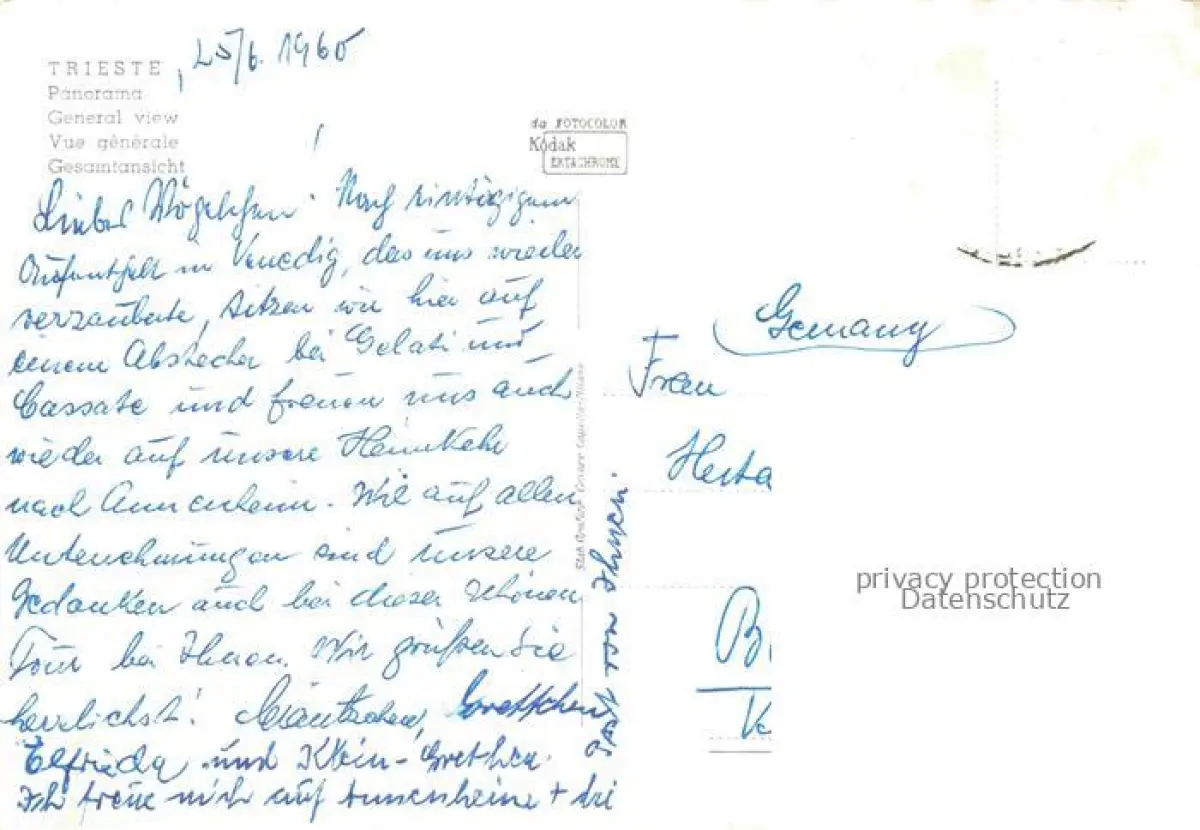 TRIESTE, 25/6. 1960
Panorama
General view
Vue générale
Gesamtansicht
da FOTOCOLOR
Kodak
EKTACHROME
Liebes Vögelchen! Nach eintägigem
Aufenthalt in Venedig, das uns wieder
verzauberte, sitzen wir hier auf
einem Abstecher bei Gelati und
Cassate und freuen uns auch
wieder auf unsere Heimkehr
nach Annenheim. Wie auf allen
Unternehmungen sind unsere
Gedanken auch bei dieser schönen
Tour bei Ihnen. Wir grüßen Sie
herzlichst!
Elfrieda und Klein-Grethen.
Ich freue mich auf Annenheim + die
Post von Ihnen.
Germany
Frau
Herta
B
privacy protection
Datenschutz